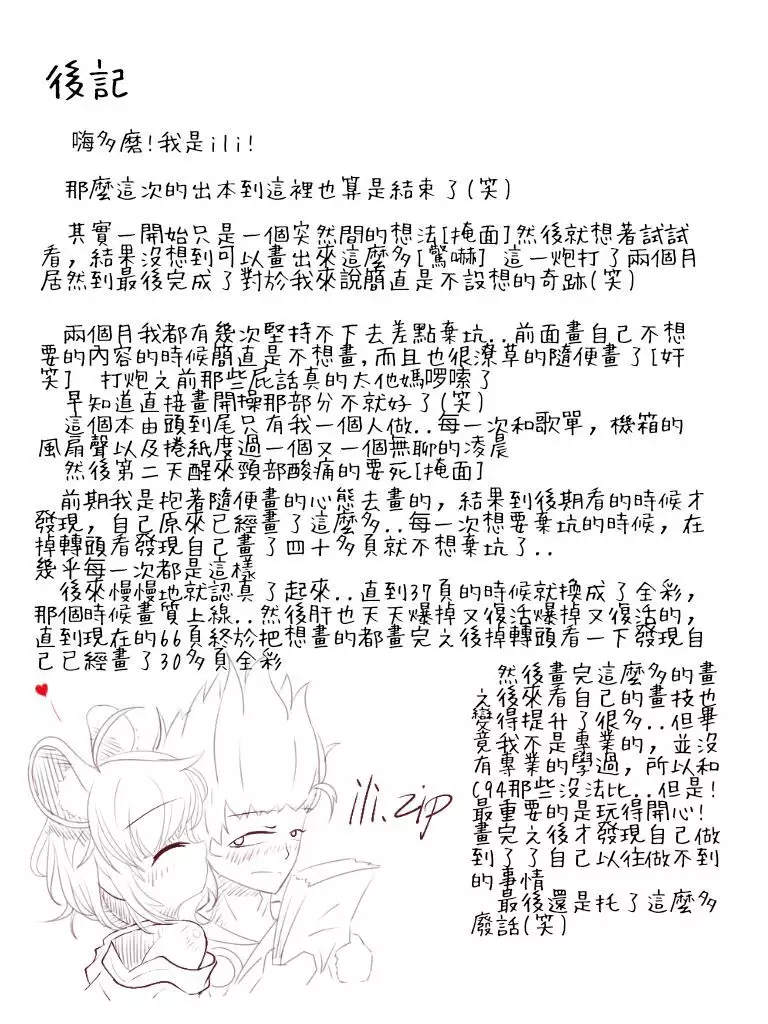 後記
嗨多磨!我是ili!
那麼這次的出本到這裡也算是結束了(笑)
其實一開始只是一個突然間的想法[掩面]然後就想著試試
看，結果沒想到可以畫出來這麼多[驚嚇] 這一炮打了兩個月
居然到最後完成了對於我來說簡直是不設想的奇跡(笑)
兩個月我都有幾次堅持不下去差點棄坑..前面畫自己不想
要的內容的時候簡直是不想畫,而且也很潦草的隨便畫了[奸
笑] 打炮之前那些屁話真的太他媽啰嗦了
早知道直接畫開操那部分不就好了(笑)
這個本由頭到尾只有我一個人做..每一次和歌單，機箱的
風扇聲以及捲紙度過一個又一個無聊的凌晨
然後第二天醒來頸部酸痛的要死[掩面]
前期我是抱著隨便畫的心態去畫的，結果到後期看的時候才
發現，自己原來已經畫了這麼多..每一次想要棄坑的時候，在
掉轉頭看發現自己畫了四十多頁就不想棄坑了..
幾乎每一次都是這樣
後來慢慢地就認真了起來..直到37頁的時候就換成了全彩，
那個時候畫質上線..然後肝也天天爆掉又復活爆掉又復活的，
直到現在的66頁終於把想畫的都畫完之後掉轉頭看一下發現自
己已經畫了30多頁全彩
然後畫完這麼多的畫
之後來看自己的畫技也
變得提升了很多..但畢
竟我不是專業的，並沒
有專業的學過，所以和
C94那些沒法比..但是!
最重要的是玩得開心!
畫完之後才發現自己做
到了了自己以往做不到
的事情
最後還是托了這麼多
廢話(笑)
ili.zip